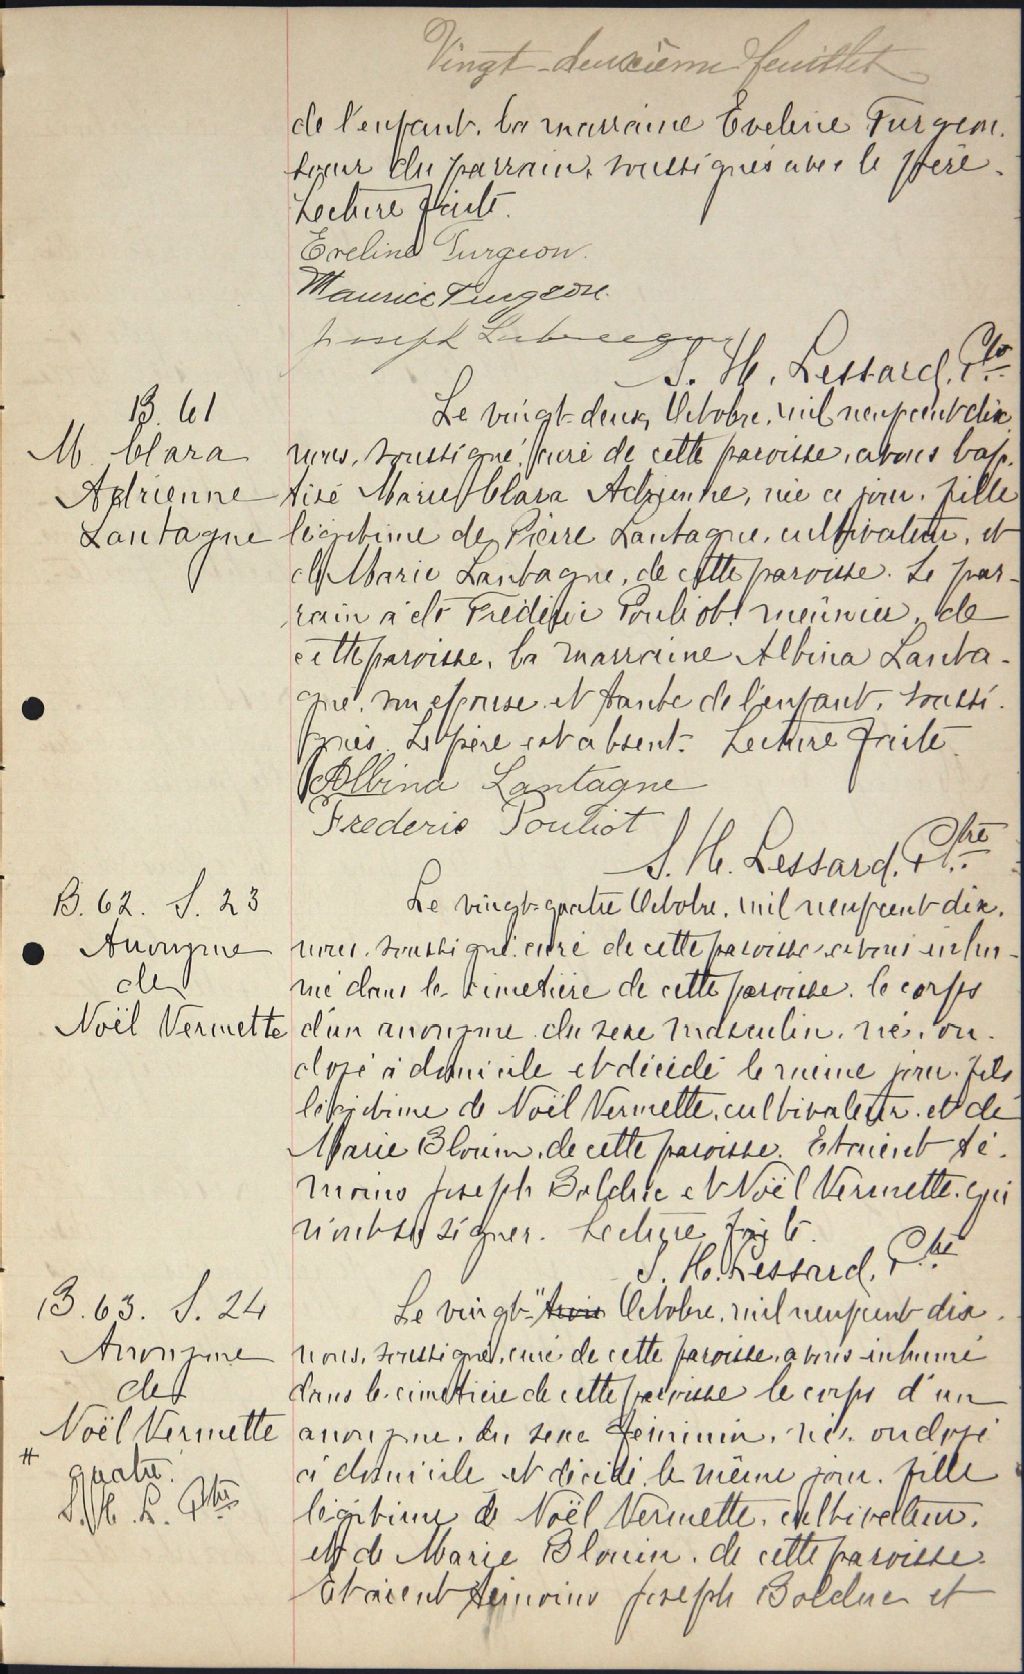 Vingt-deuxième feuillet
de l'enfant, la marraine Eveline Turgeon,
soeur du parrain, soussignés avec le père.
Lecture faite.
Eveline Turgeon.
Maurice Turgeon.
Joseph
S. H. Lessard, Ptre
B. 61
M Clara
Adrienne
Lantagne
Le vingt-deux Octobre, mil neuf cent dix,
nous, soussigné, curé de cette paroisse, avons bap-
tisé Marie Clara Adrienne, née ce jour, fille
légitime de Pierre Lantagne, cultivateur, et
de Marie Lantagne, de cette paroisse. Le par-
rain a été Frédéric Pouliot, meunier, de
cette paroisse, la marraine Albina Lanta-
gne, son épouse et tante de l'enfant, soussi-
gnés. Le père est absent. Lecture faite.
Albina Lantagne
Frederic Pouliot
S. H. Lessard, Ptre
B. 62. S. 23
Anonyme
de
Noël Vermette
Le vingt-quatre Octobre, mil neuf cent dix,
nous, soussigné, curé de cette paroisse, avons inhu-
mé dans le cimetière de cette paroisse, le corps
d'un anonyme du sexe masculin, né, on-
doyé à domicile et décédé le même jour, fils
légitime de Noël Vermette, cultivateur, et de
Marie Blouin, de cette paroisse. Etaient té-
moins Joseph Bolduc et Noël Vermette, qui
n'ont su signer. Lecture faite.
S. H. Lessard, Ptre
B. 63. S. 24
Anonyme
de
Noël Vermette
# quatre.
S. H. L. Ptre
Le vingt-#trois Octobre, mil neuf cent dix,
nous, soussigné, curé de cette paroisse, avons inhumé
dans le cimetière de cette paroisse le corps d'un
anonyme, du sexe féminin, né, ondoyé
à domicile et décédé le même jour, fille
légitime de Noël Vermette, cultivateur,
et de Marie Blouin, de cette paroisse.
Etaient témoins Joseph Bolduc et